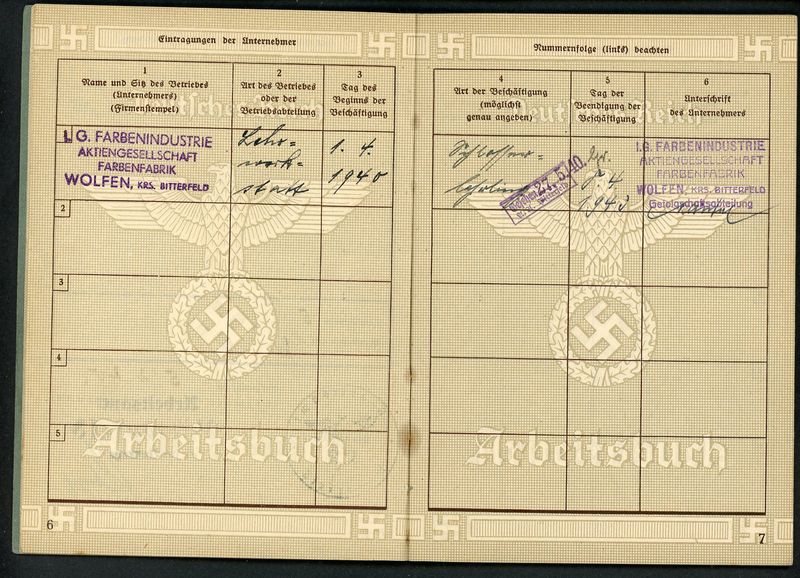 Eintragungen der Unternehmer
1
Name und Sitz des Betriebes
(Unternehmers)
(Firmenstempel)
2
Art des Betriebes
oder der
Betriebsabteilung
3
Tag des
Beginns der
Beschäftigung
I.G. FARBENINDUSTRIE
AKTIENGESELLSCHAFT
FARBENFABRIK
WOLFEN, KRS. BITTERFELD
Lehr-
werk-
statt
1. 4.
1940
2
3
4
5
Arbeitsbuch
6
Nummernfolge (links) beachten
4
Art der Beschäftigung
(möglichst
genau angeben)
5
Tag der
Beendigung der
Beschäftigung
6
Unterschrift
des Unternehmers
Deutsches Reich
Schlosser-
lehrling
27. 5. 40.
1943
I.G. FARBENINDUSTRIE
AKTIENGESELLSCHAFT
FARBENFABRIK
WOLFEN, KRS. BITTERFELD
Gefolgschaftsabteilung
Arbeitsbuch
7